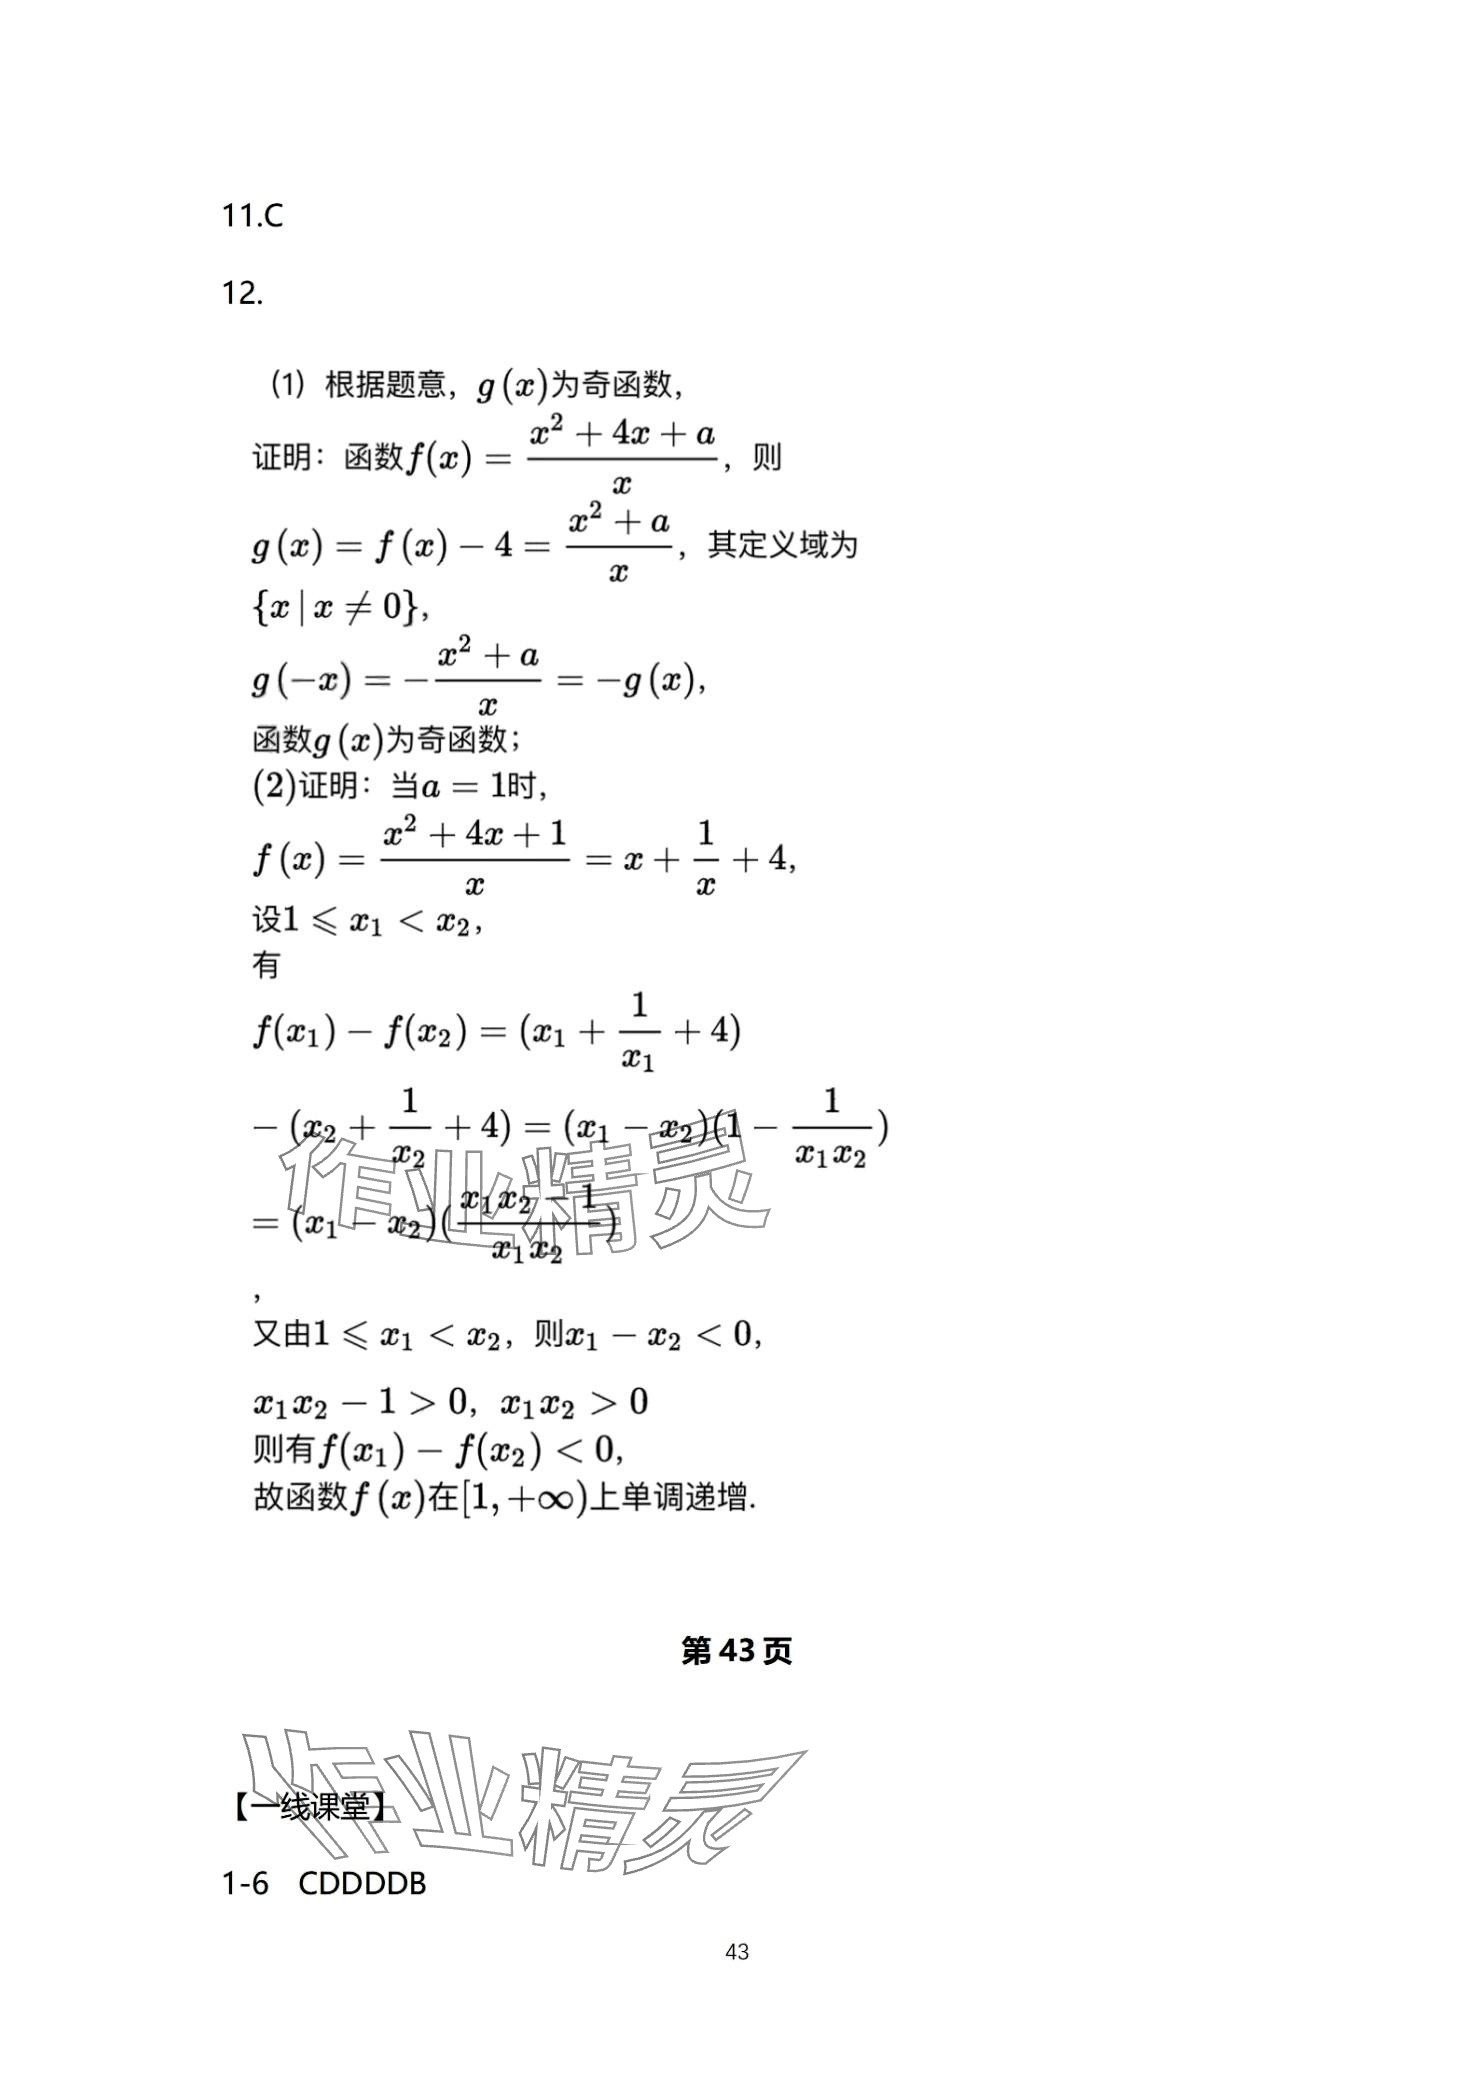 11.C
12.
(1) 根据题意，g(x)为奇函数，
证明：函数f(x) = \frac{x^2 + 4x + a}{x}，则
g(x) = f(x) − 4 = \frac{x^2 + a}{x}，其定义域为
{x | x ≠ 0}，
g(−x) = −\frac{x^2 + a}{x} = −g(x)，
函数g(x)为奇函数；
(2)证明：当a = 1时，
f(x) = \frac{x^2 + 4x + 1}{x} = x + \frac{1}{x} + 4，
设1 ⩽ x₁ < x₂，
有
f(x₁) − f(x₂) = (x₁ + \frac{1}{x₁} + 4)
− (x₂ + \frac{1}{x₂} + 4) = (x₁ − x₂)(1 − \frac{1}{x₁x₂})
= (x₁ − x₂)(\frac{x₁x₂ − 1}{x₁x₂})
，
又由1 ⩽ x₁ < x₂，则x₁ − x₂ < 0，
x₁x₂ − 1 > 0，x₁x₂ > 0
则有f(x₁) − f(x₂) < 0，
故函数f(x)在[1, +∞)上单调递增.
作业精灵
第 43 页
作业精灵
【一线课堂】
1-6 CDDDDB
43